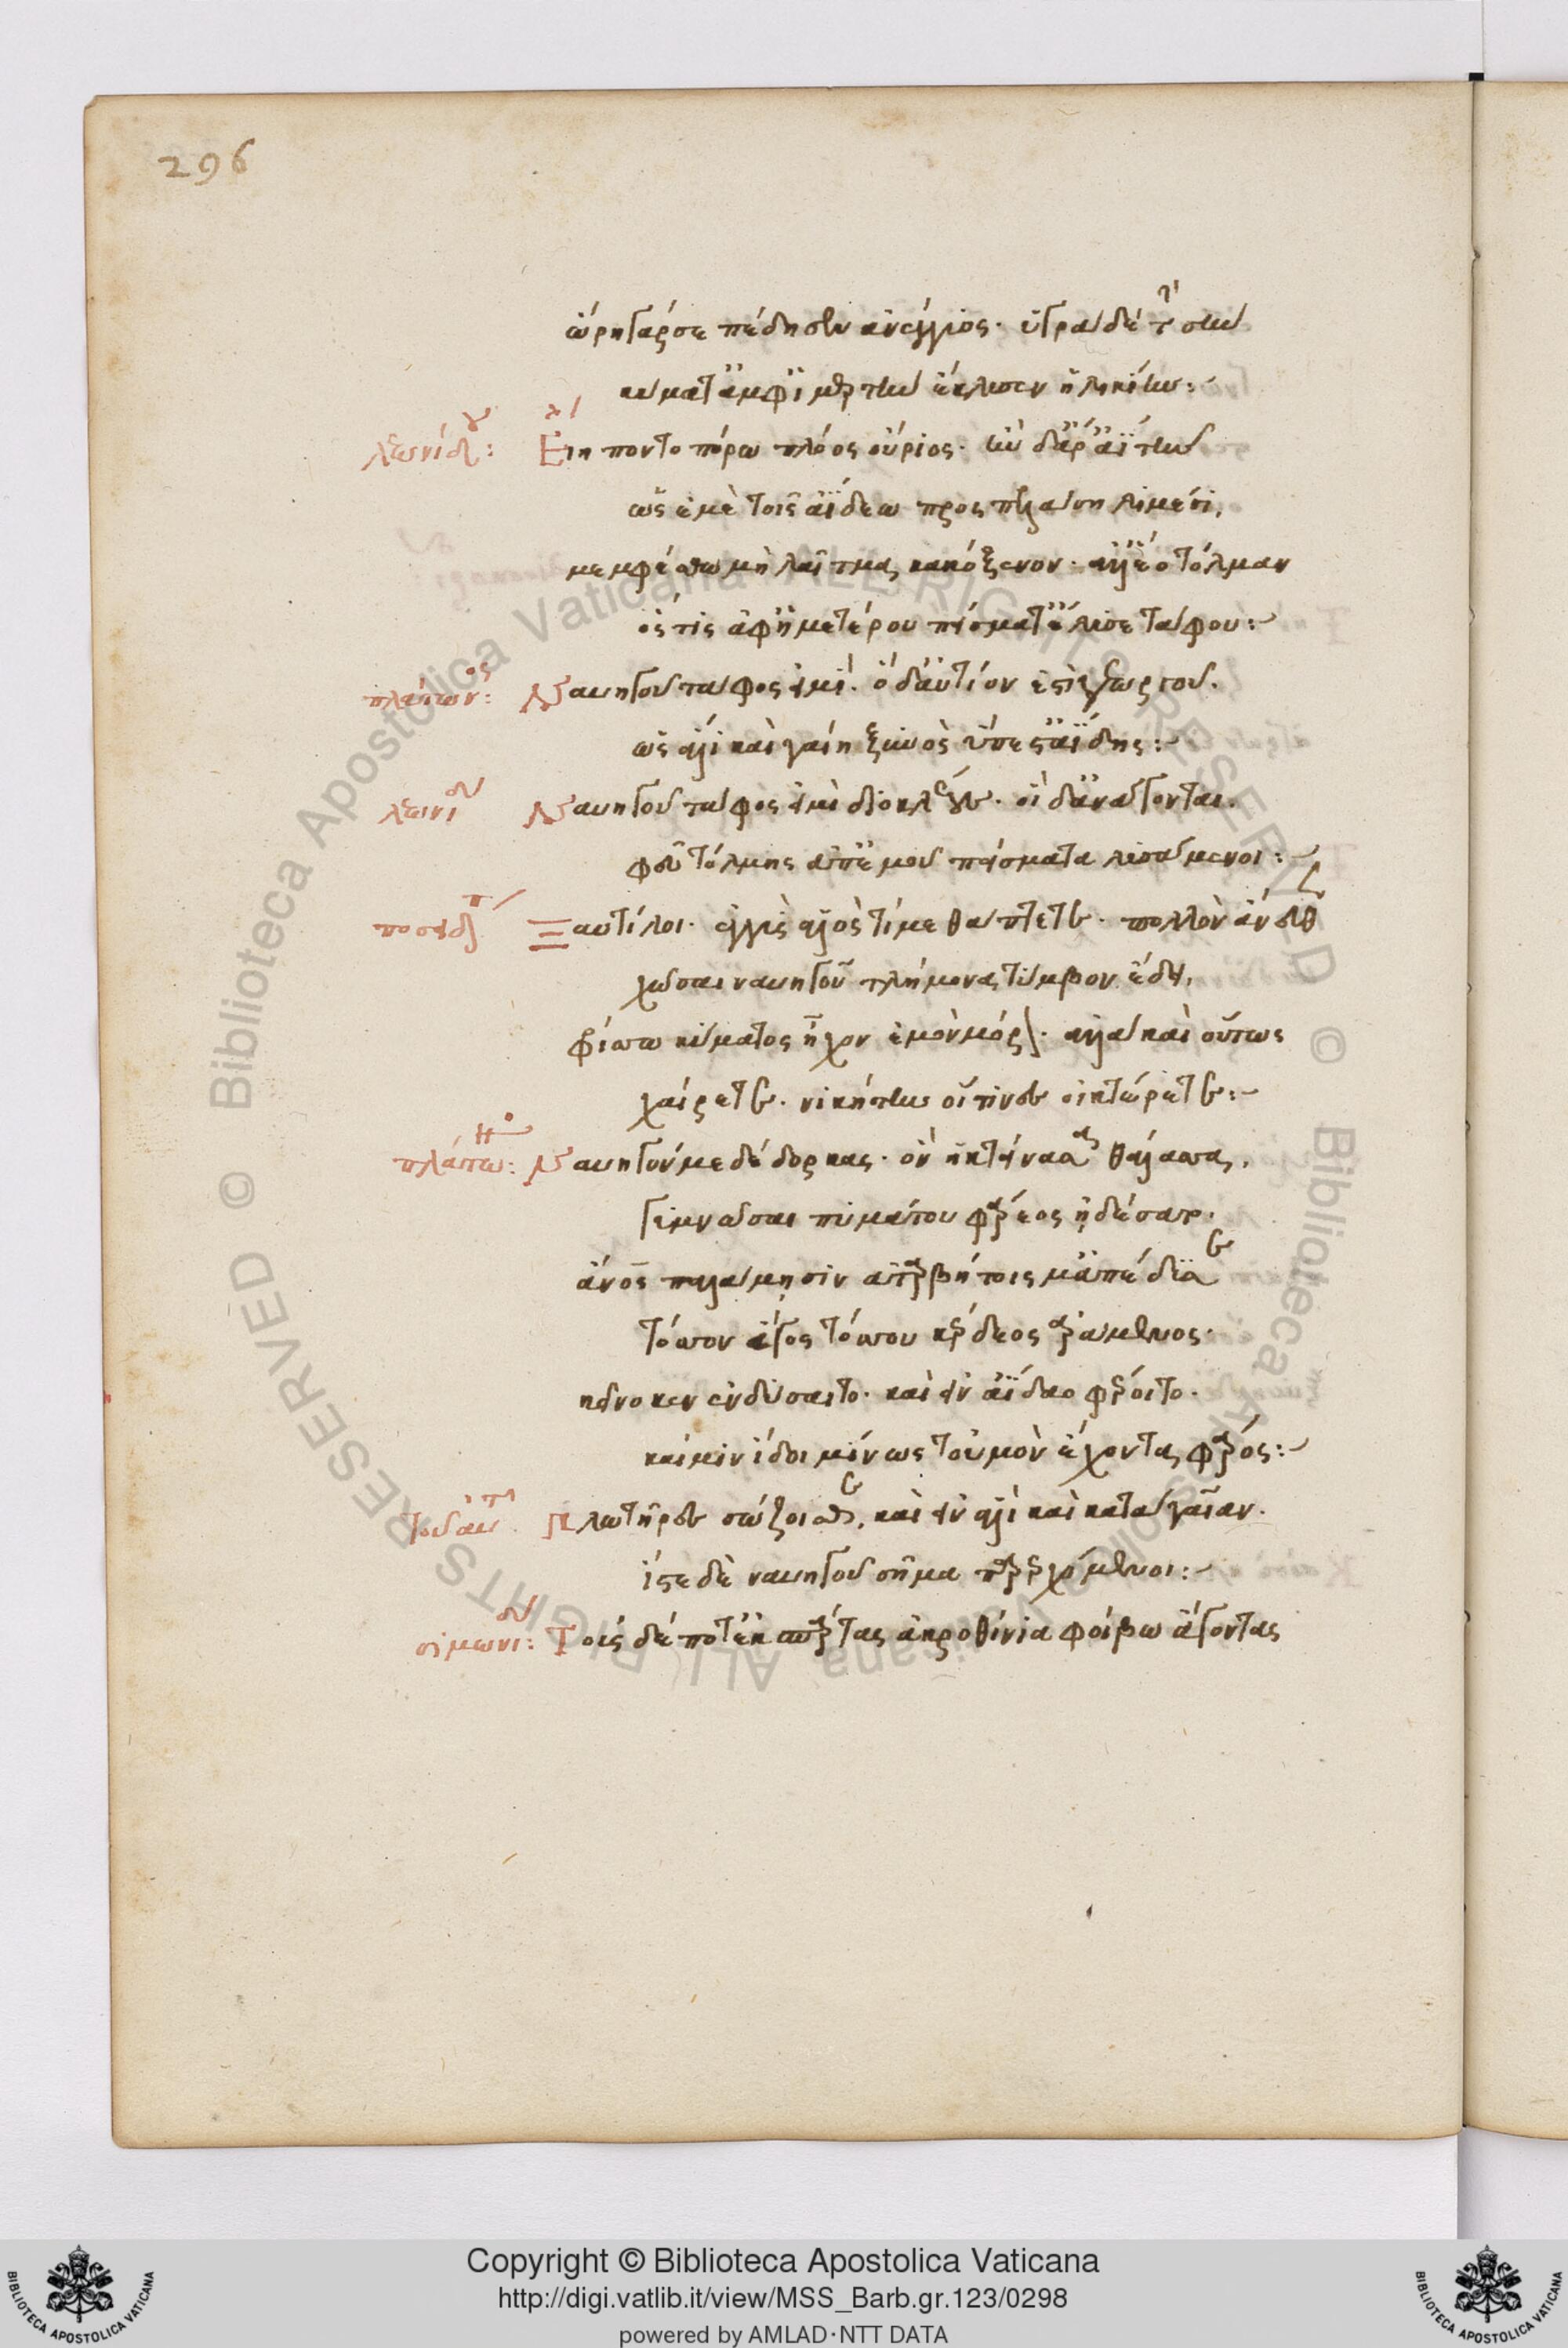 296
ὥρη γάρ σε πέδησεν ἀνάγγελος· ὑγρὰ δὲ τὴν σὴν
κύματ' ἀμφιμαρτῆ ἔκλυσεν ἡλικίην:
λεωνίδου: Εἴη ποντοπόρω πλόος οὔριος· ἢν δ' ἄρ' ἀήτης
ὡς ἐμὲ τοῖς ἀΐδεω προσπελάση λιμέσι,
μεμφέσθω μὴ λαῖτμα κακόξενον· ἀλλ' ἑο τόλμαν
ὅστις ἀφ' ἡμετέρου πείσματ' ἔλυσε τάφου:
πλάτωνος: Ναυηγοῦ τάφος εἰμί· ὁ δ' ἀντίον ἐστὶ γεωργοῦ.
ὡς ἁλὶ καὶ γαίη ξυνὸς ὕπεστ' ἀΐδης:
λεωνίδου Ναυηγοῦ τάφος εἰμὶ διοκλέος· οἱ δ' ἀνάγονται.
φεῦ τόλμης ἀπ' ἐμοῦ πείσματα λυσάμενοι:
ποσειδίππου Ναυτίλοι· ἐγγὺς ἁλὸς τί με θάπτετε· πολλὸν ἄνευθε
χῶσαι ναυηγοῦ τλήμονα τύμβον ἔδει,
φρίσσω κύματος ἦχον ἐμὸν μόρον· ἀλλὰ καὶ οὕτως
χαίρετε· νικήτην οἵτινες οἰκτείρετε:
πλάτωνος: Ναυηγόν με δέδορκας· ὃν οἰκτείρασα θάλασσα,
γυμνῶσαι πυμάτου φάρεος ἠδέσατο.
ἄνθρωπος παλάμησιν ἀταρβήτοις μ' ἀπέδυσε
τόσσον ἄγος τόσσου κέρδεος ἀράμενος·
κεῖνό κεν ἐνδύσαιτο· καὶ εἰν ἀΐδαο φέροιτο·
καί μιν ἴδοι μίνως τοὐμὸν ἔχοντα φάρος:
τοῦ αὐτοῦ Πλωτῆρες σώζοισθε, καὶ εἰν ἁλὶ καὶ κατὰ γαῖαν.
ἴστε δὲ ναυηγοῦ σῆμα παρερχόμενοι:
σιμωνίδου: Τούς δέ ποτ' ἐκ σπάρτας ἀκροθίνια φοίβω ἄγοντας
Copyright © Biblioteca Apostolica Vaticana
http://digi.vatlib.it/view/MSS_Barb.gr.123/0298
powered by AMLAD·NTT DATA